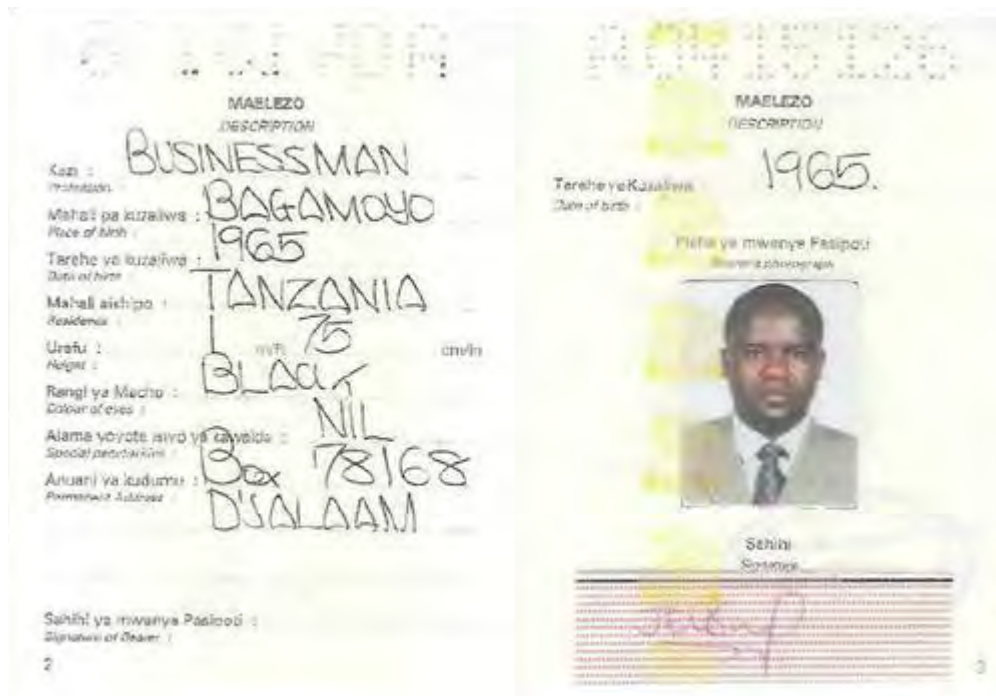 MAELEZO
DESCRIPTION
Kazi : BUSINESSMAN
Profession :
Mahali pa kuzaliwa : BAGAMOYO
Place of birth
Tarehe ya kuzaliwa : 1965
Date of birth
Mahali aishipo : TANZANIA
Residence :
Urefu : 1 m/ft 75 cm/in
Height :
Rangi ya Macho : BLACK
Colour of eyes :
Alama yoyote isiyo ya kawaida : NIL
Special peculiarities :
Anuani ya kudumu : Box 78168
Permanent Address
D'SALAAM
Sahihi ya mwenye Pasipoti :
Signature of Bearer :
2
MAELEZO
DESCRIPTION
Tarehe ya Kuzaliwa 1965.
Date of birth :
Picha ya mwenye Pasipoti
Bearer's photograph
Sahihi
Signature
3